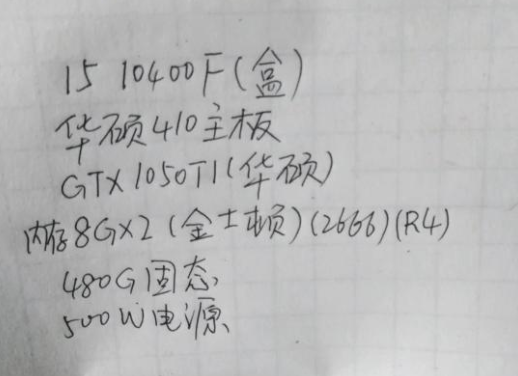 I5 10400F(盒)
华硕410主板
GTX1050TI(华硕)
内存8GX2(金士顿)(2666)(R4)
480G固态
500W电源